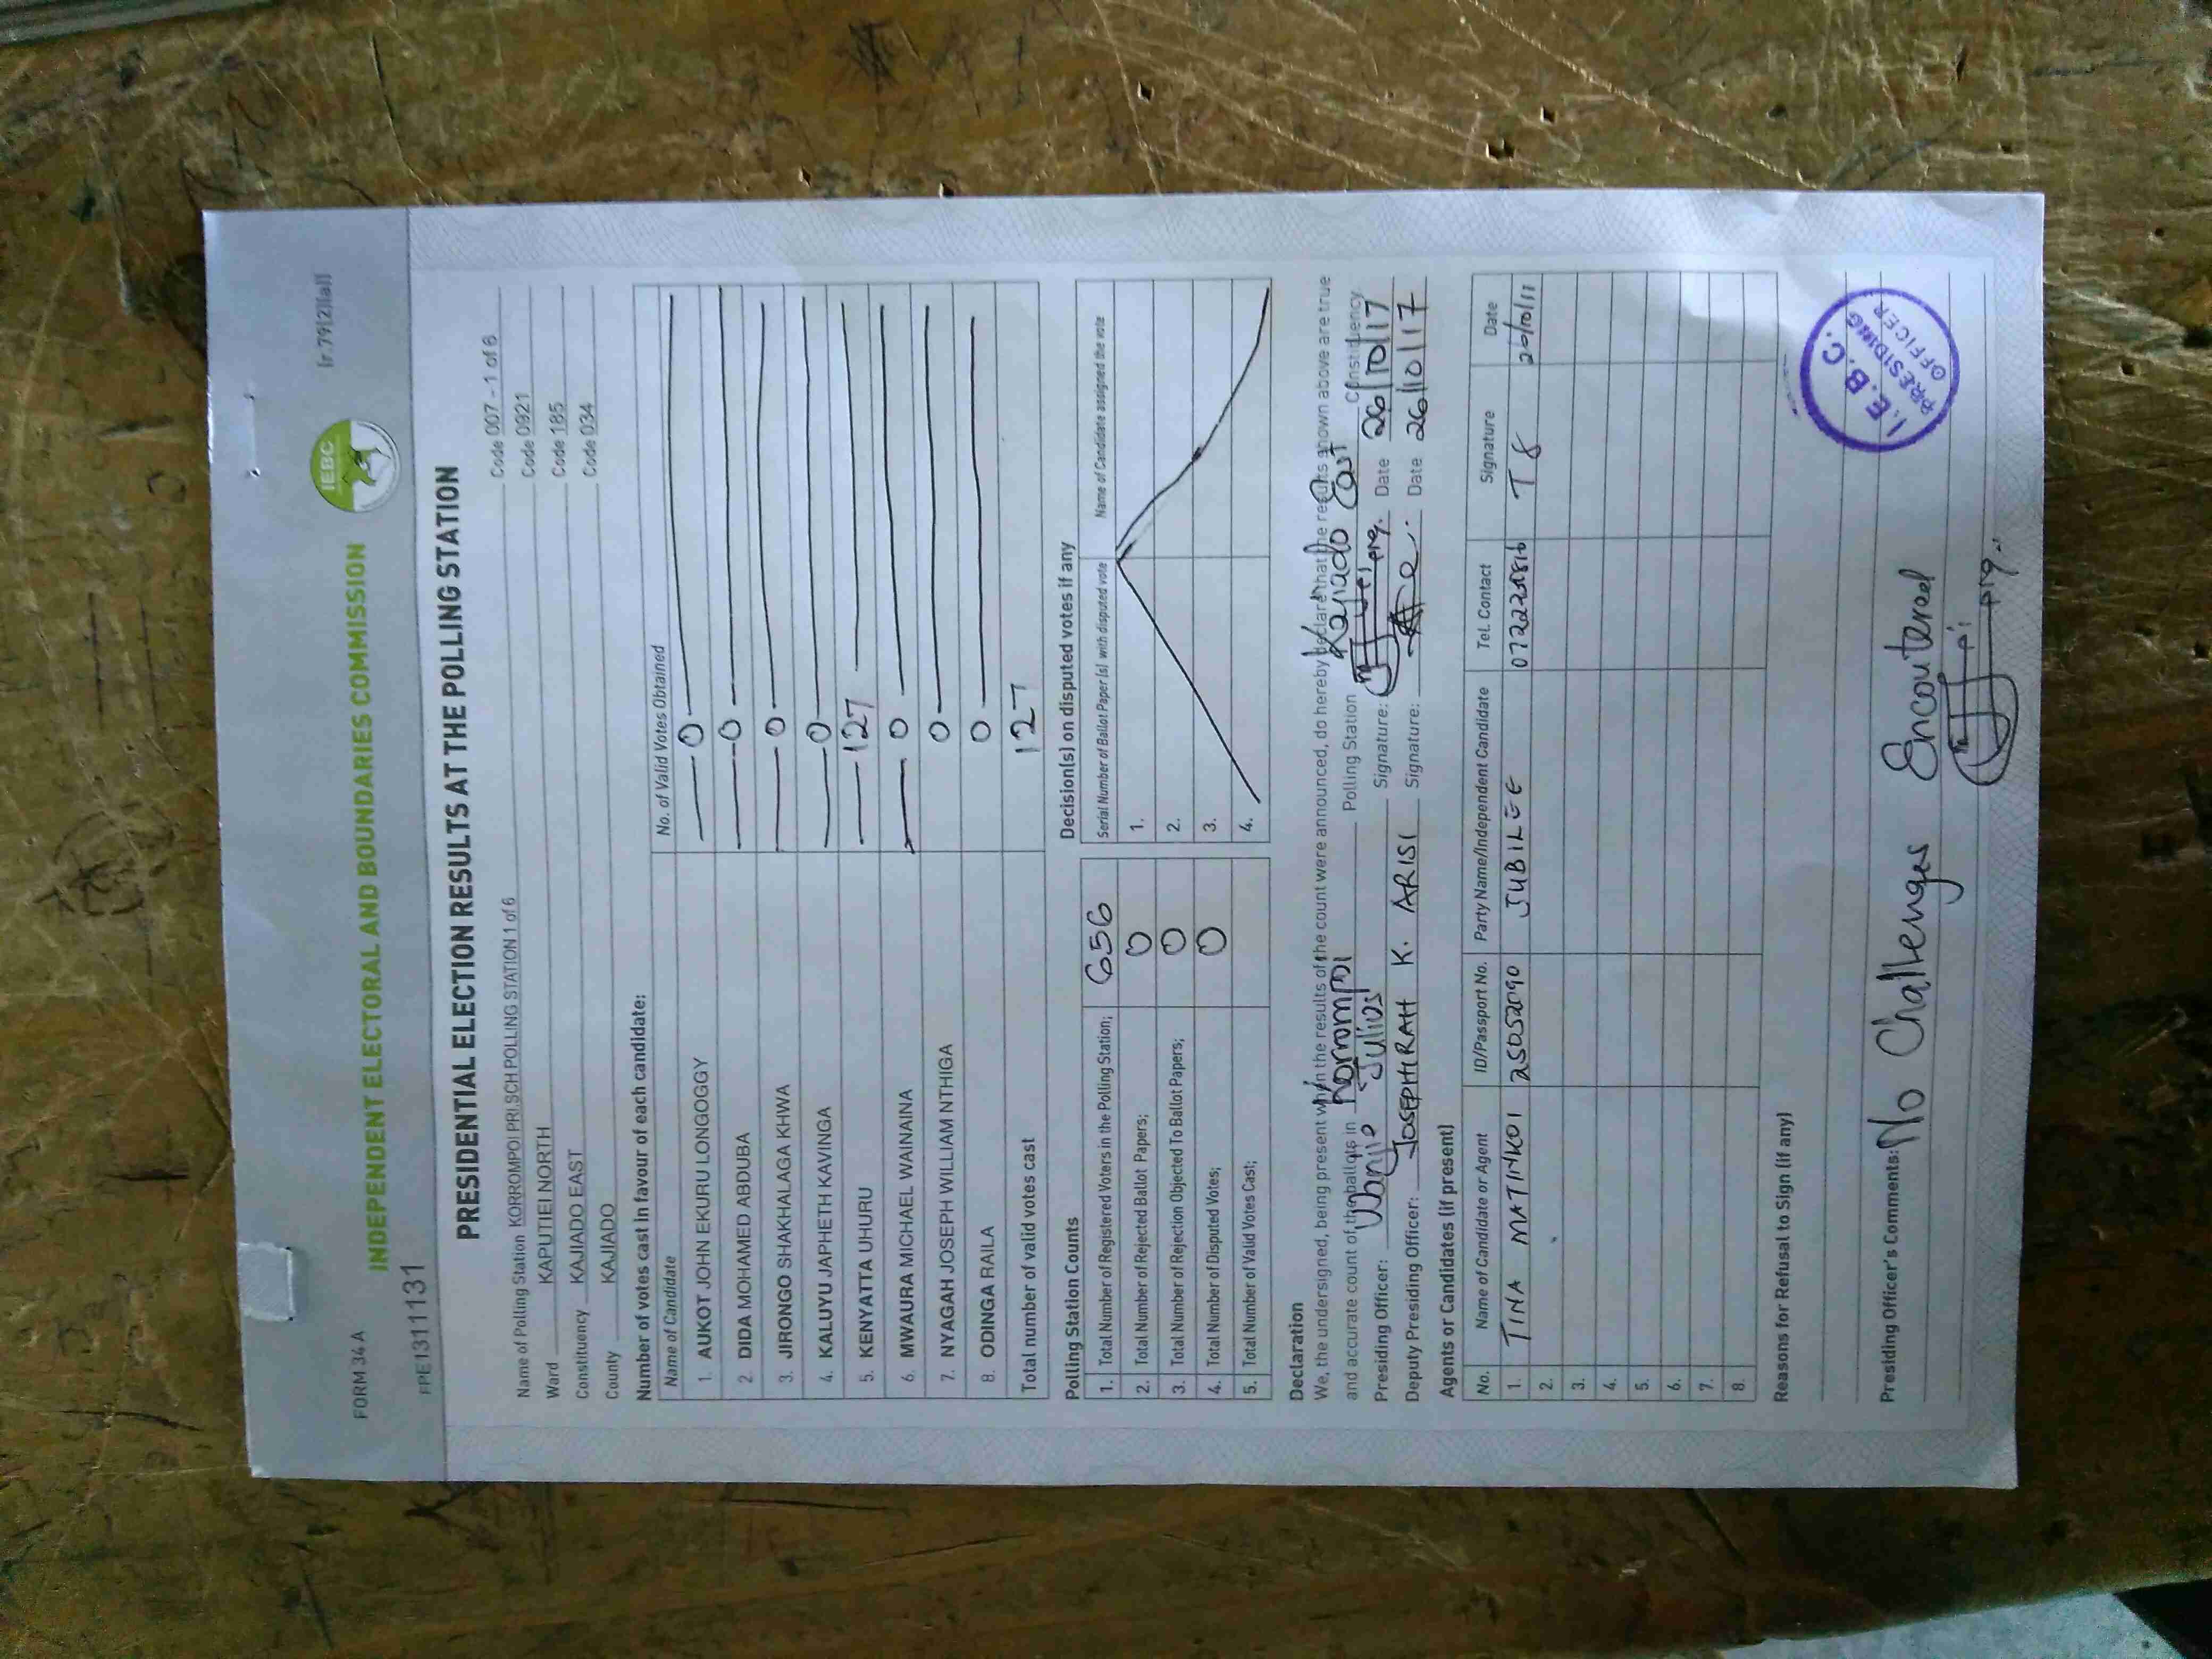 FORM 34 A
INDEPENDENT ELECTORAL AND BOUNDARIES COMMISSION
IEBC
[r.79(2)(a)]
PPE1311131
PRESIDENTIAL ELECTION RESULTS AT THE POLLING STATION
Name of Polling Station KORROMPOI PRI.SCH POLLING STATION 1 of 6 Code 007 - 1 of 6
Ward KAPUTIEI NORTH Code 0921
Constituency KAJIADO EAST Code 185
County KAJIADO Code 034
Number of votes cast in favour of each candidate:
Name of Candidate No. of Valid Votes Obtained
1. AUKOT JOHN EKURU LONGOGGY 0
2. DIDA MOHAMED ABDUBA 0
3. JIRONGO SHAKHALAGA KHWA 0
4. KALUYU JAPHETH KAVINGA 0
5. KENYATTA UHURU 127
6. MWAURA MICHAEL WAINAINA 0
7. NYAGAH JOSEPH WILLIAM NTHIGA 0
8. ODINGA RAILA 0
Total number of valid votes cast 127
Polling Station Counts
1. Total Number of Registered Voters in the Polling Station; 656
2. Total Number of Rejected Ballot Papers; 0
3. Total Number of Rejection Objected To Ballot Papers; 0
4. Total Number of Disputed Votes; 0
5. Total Number of Valid Votes Cast;
Decision(s) on disputed votes if any
Serial Number of Ballot Paper (s) with disputed vote Name of Candidate assigned the vote
1.
2.
3.
4.
Declaration
We, the undersigned, being present when the results of the count were announced, do hereby declare that the results shown above are true
and accurate count of the ballots in Korrompoi Polling Station Kajiado East Constituency
Presiding Officer: Wanjio Julius Signature: Date 26/10/17
Deputy Presiding Officer: JOSEPHIRAH K. ARISI Signature: Date 26/10/17
Agents or Candidates (if present)
No. Name of Candidate or Agent ID/Passport No. Party Name/Independent Candidate Tel. Contact Signature Date
1. TINA MATINKOI 25052090 JUBILEE
2.
3.
4.
5.
6.
7.
8.
Reasons for Refusal to Sign (if any)
Presiding Officer's Comments: No Challenges Encoutered
I.E.B.C.
PRESIDING
OFFICER